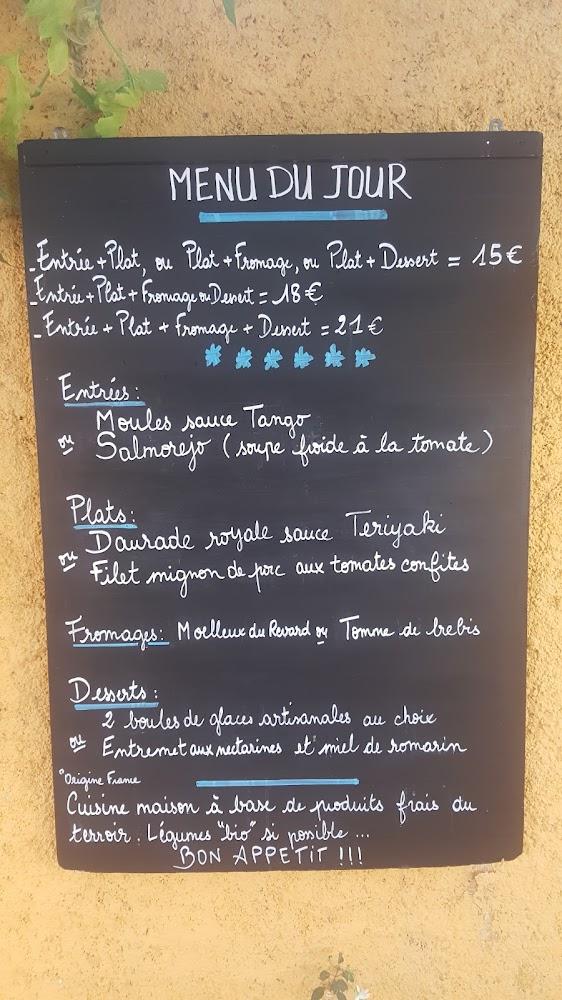 MENU DU JOUR
- Entrée + Plat, ou Plat + Fromage, ou Plat + Dessert = 15€
- Entrée + Plat + Fromage ou Dessert = 18€
- Entrée + Plat + Fromage + Dessert = 21€
Entrées :
Moules sauce Tango
ou Salmorejo (soupe froide à la tomate)
Plats :
Daurade royale sauce Teriyaki
ou Filet mignon de porc aux tomates confites
Fromages : Moelleux du Revard ou Tomme de brebis
Desserts :
2 boules de glaces artisanales au choix
ou Entremet aux nectarines et miel de romarin
°Origine France
Cuisine maison à base de produits frais du
terroir. Légumes "bio" si possible ...
BON APPETIT !!!